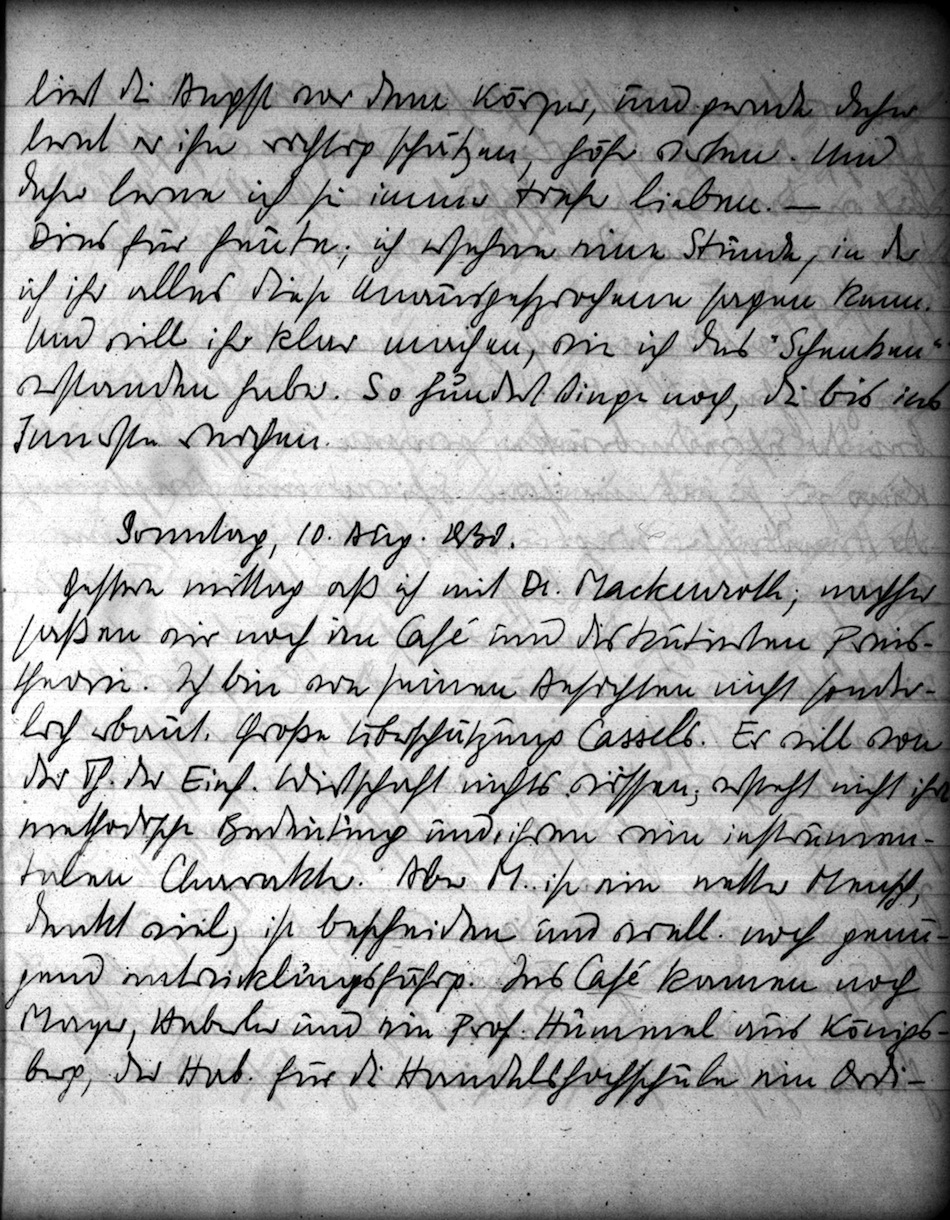 liert die Angst vor dem Körper, und gerade daher
lernt er ihn richtig schätzen, höher achten. Und
daher lerne ich sie immer tiefer lieben. —
Dies für heute; ich ersehne eine Stunde, in der
ich ihr alles diese Unausgesprochene sagen kann.
Und will ihr klar machen, wie ich das "Schenken"
verstanden habe. So hundert Dinge noch, die bis ins
Innerste reichen.
Sonntag, 10. Aug. 1930.
Gestern mittag aß ich mit Dr. Mackenroth; nachher
saßen wir noch im Café und diskutierten Preis-
theorie. Ich bin von seinen Ansichten nicht sonder-
lich erbaut. Große Überschätzung Cassels. Er will von
der Th. der Einf. Wirtschaft nichts wissen; versteht nicht ihre
methodische Bedeutung und ihren rein instrumen-
talen Charakter. Aber M. ist ein netter Mensch,
denkt viel, ist bescheiden und viell. noch genü-
gend entwicklungsfähig. Ins Café kamen noch
Mayer, Haberler und ein Prof. Hummel aus Königs-
berg, der Hab. für die Handelshochschule ein Ordi-